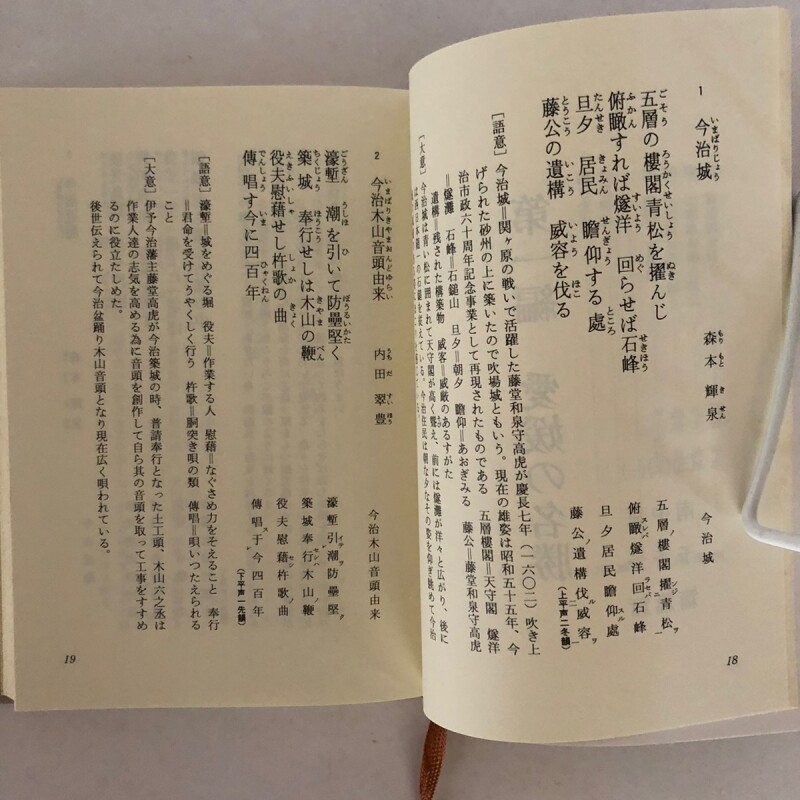 1 今治城
森本輝泉
五層の樓閣青松を擢んじ
俯瞰すれば燧洋 回らせば石峰
旦夕 居民 瞻仰する處
藤公の遺構 威容を伐る
今治城
五層樓閣擢青松
俯瞰燧洋回石峰
旦夕居民瞻仰處
藤公遺構伐威容
(上平声二冬韻)
[語意] 今治城=関ヶ原の戦いで活躍した藤堂和泉守高虎が慶長七年(一六〇二)吹き上
げられた砂州の上に築いたので吹場城ともいう。現在の雄姿は昭和五十五年、今
治市政六十周年記念事業として再現されたものである 五層樓閣=天守閣 燧洋
=燧灘 石峰=石鎚山 旦夕=朝夕 瞻仰=あおぎみる 藤公=藤堂和泉守高虎
遺構=残された構築物 威容=威厳のあるすがた
[大意] 今治城は青い松に囲まれて天守閣が高く聳え、前には燧灘が洋々と広がり、後に
は西日本随一の石鎚を従えている。今治住民は朝な夕なその姿を仰ぎ眺めて今治
18
2 今治木山音頭由来
内田翠豊
濠塹 潮を引いて防壘堅く
築城 奉行せしは木山の鞭
役夫慰藉せし杵歌の曲
傳唱す今に四百年
今治木山音頭由来
濠塹引潮防壘堅
築城奉行木山鞭
役夫慰藉杵歌曲
傳唱于今四百年
(下平声一先韻)
[語意] 濠塹=城をめぐる堀 役夫=作業する人 慰藉=なぐさめ力をそえること 奉行
=君命を受けてうやくしく行う 杵歌=胴突き唄の類 傳唱=唄いつたえられる
こと
[大意] 伊予今治藩主藤堂高虎が今治築城の時、普請奉行となった土工頭、木山六之丞は
作業人達の志気を高める為に音頭を創作して自ら其の音頭を取って工事をすすめ
るのに役立たしめた。
後世伝えられて今治盆踊り木山音頭となり現在広く唄われている。
19